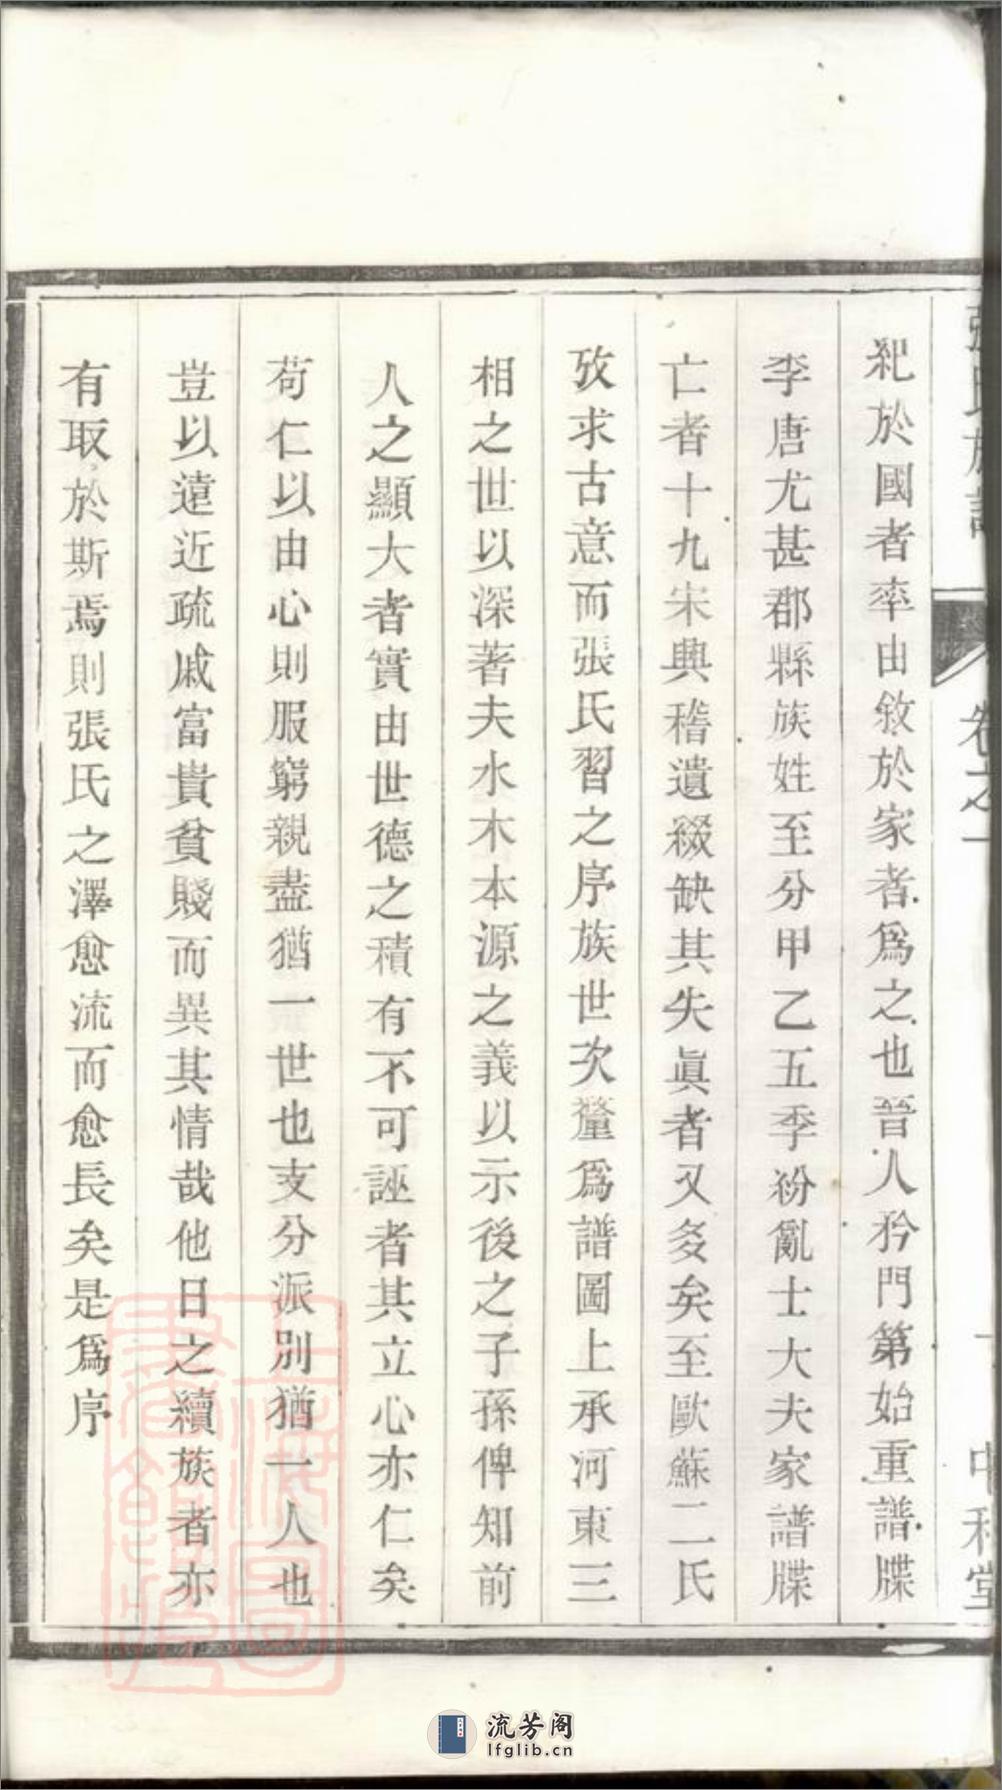 張氏族譜 卷之一 中和堂
紀於國者率由敘於家者爲之也晉人矜門第始重譜牒
李唐尤甚郡縣族姓至分甲乙五季紛亂士大夫家譜牒
亡者十九宋興稽遺綴缺其失眞者又多矣至歐蘇二氏
攷求古意而張氏習之序族世次釐爲譜圖上承河東三
相之世以深著夫水木本源之義以示後之子孫俾知前
人之顯大者實由世德之積有不可誣者其立心亦仁矣
苟仁以由心則服窮親盡猶一世也支分派別猶一人也
豈以遠近疏戚富貴貧賤而異其情哉他日之續族者亦
有取於斯焉則張氏之澤愈流而愈長矣是爲序
流芳阁
lfglib.cn